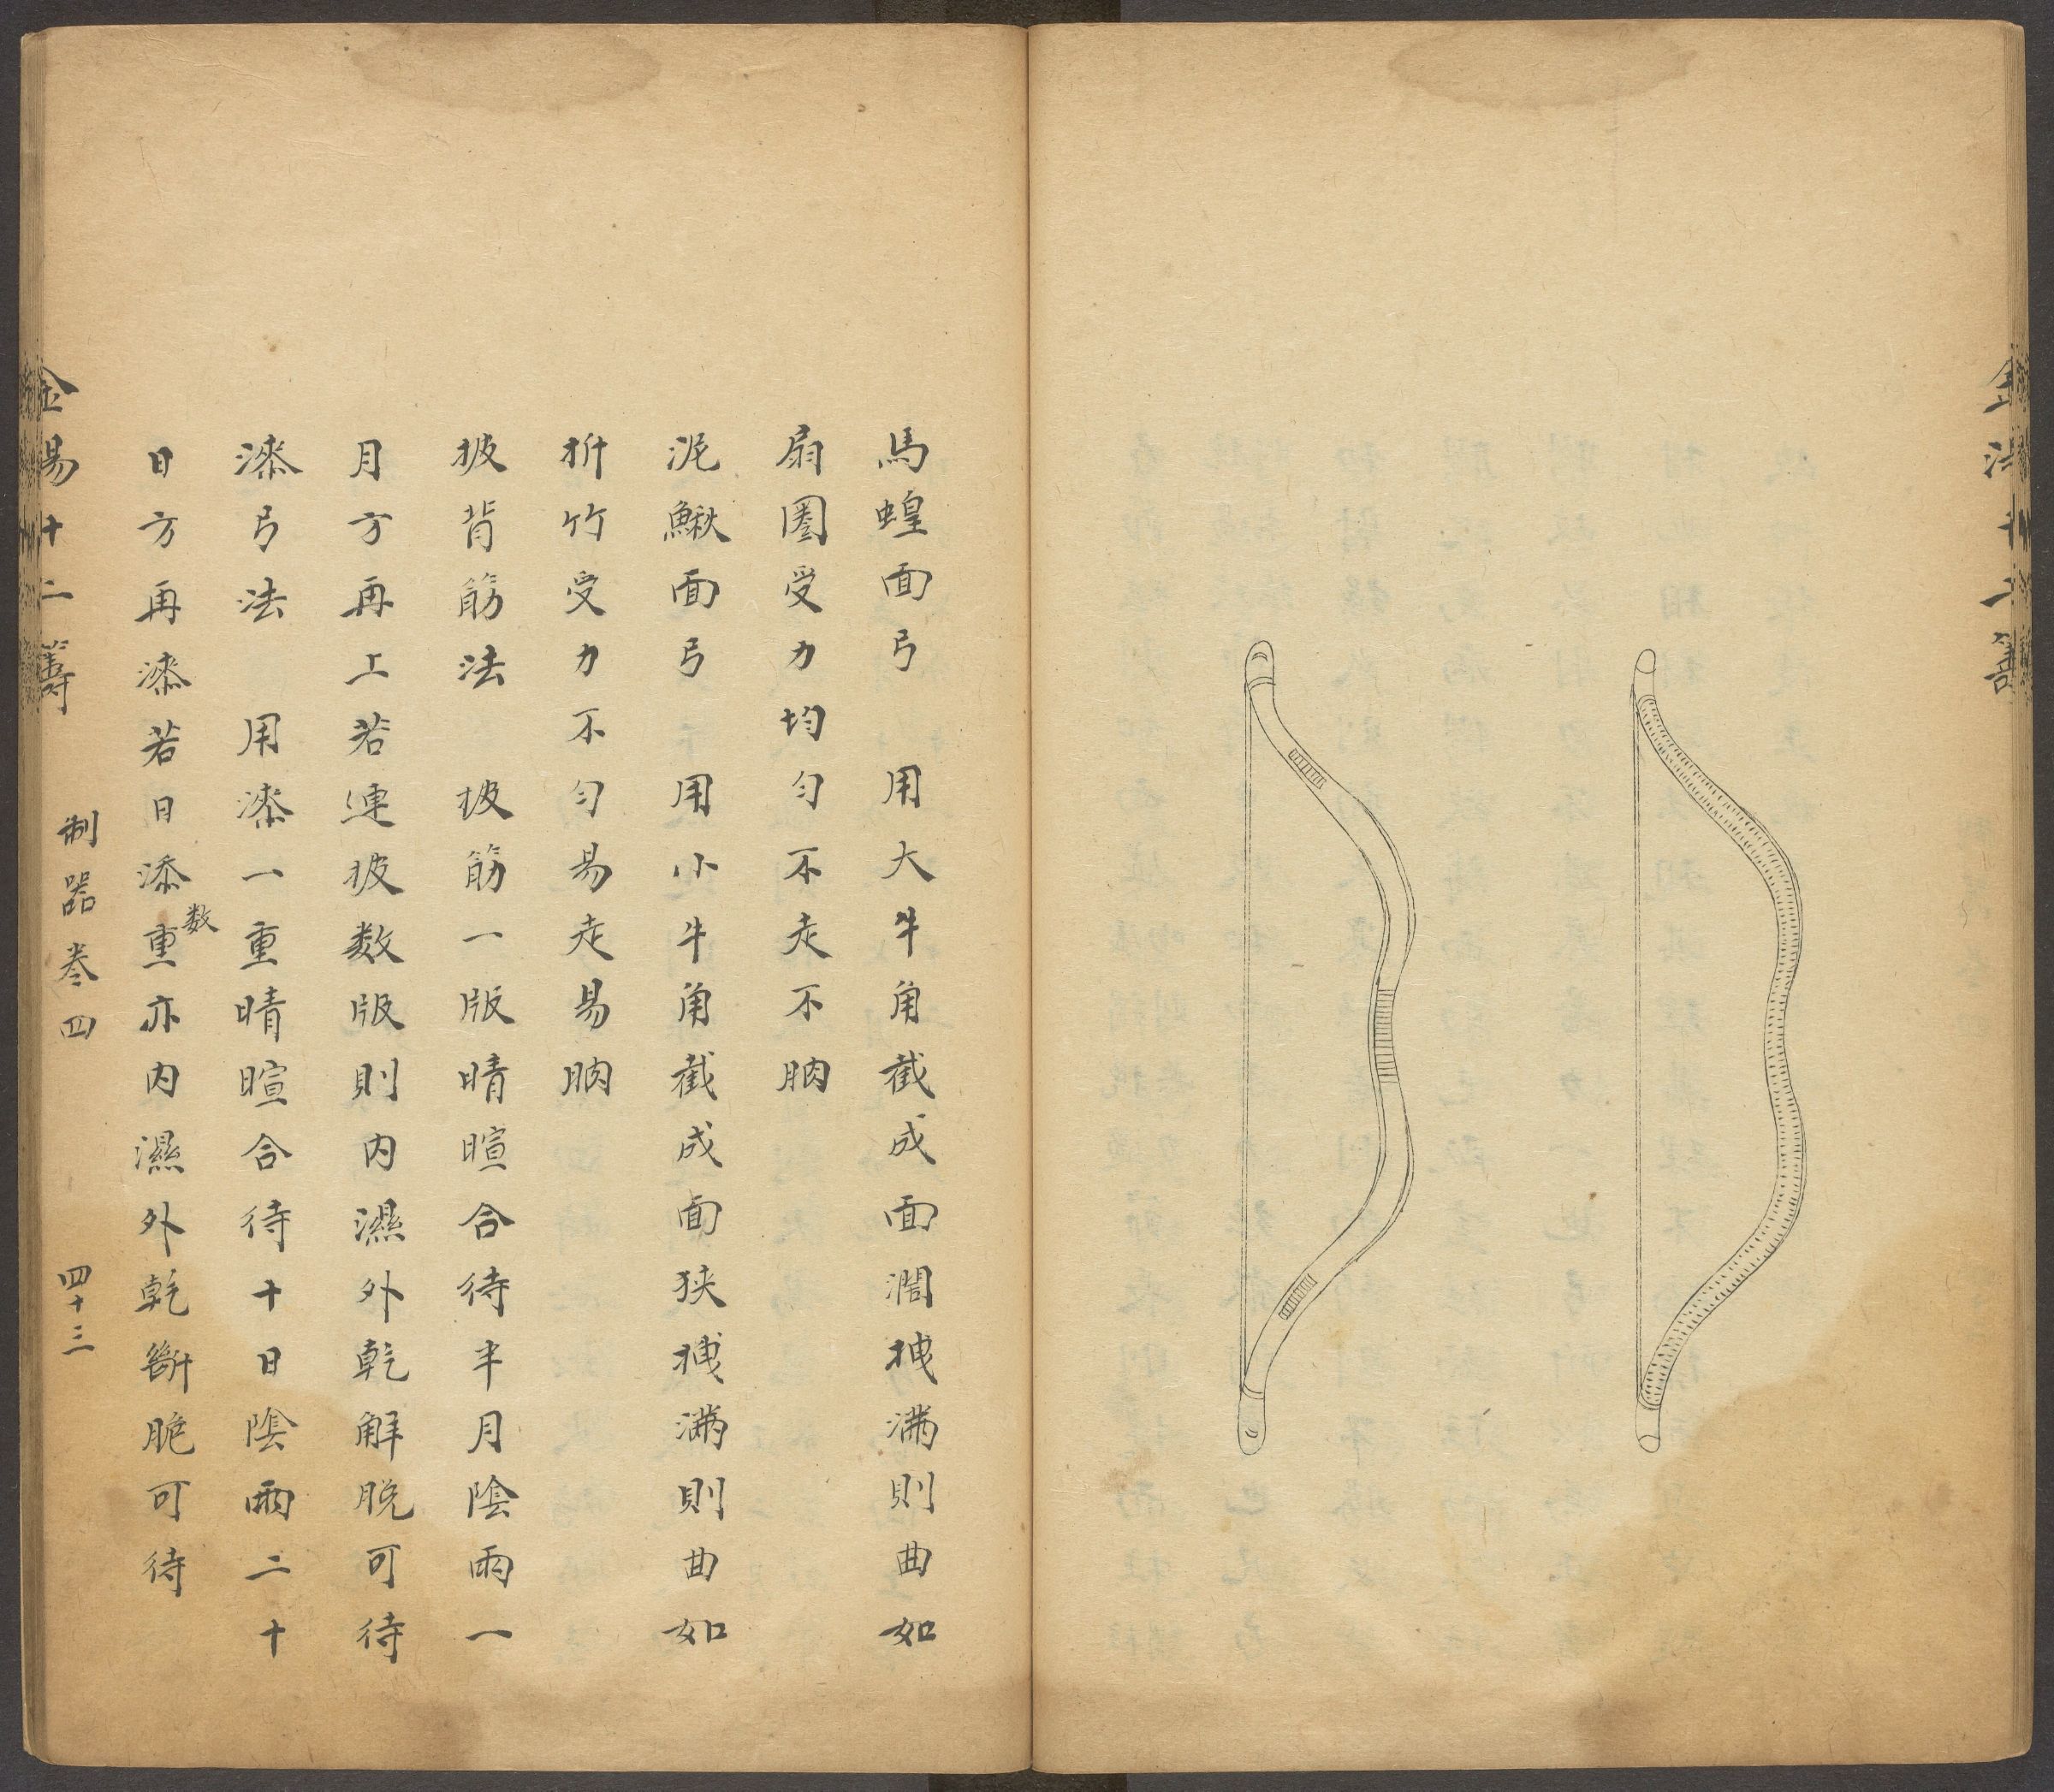 馬蝗面弓　用大牛角截成面濶拽滿則曲如
扇圏受力均勻不走不朒
泥鰍面弓　用小牛角截成面狹拽滿則曲如
折竹受力不勻易走易朒
披背筋法　披筋一版晴暄合待半月陰雨一
月方再上若連披数版則内濕外乾解脫可待
漆弓法　用漆一重晴暄合待十日陰雨二十
日方再漆若日添数重亦内濕外乾斷脆可待
金湯十二籌　制器卷四　四十三